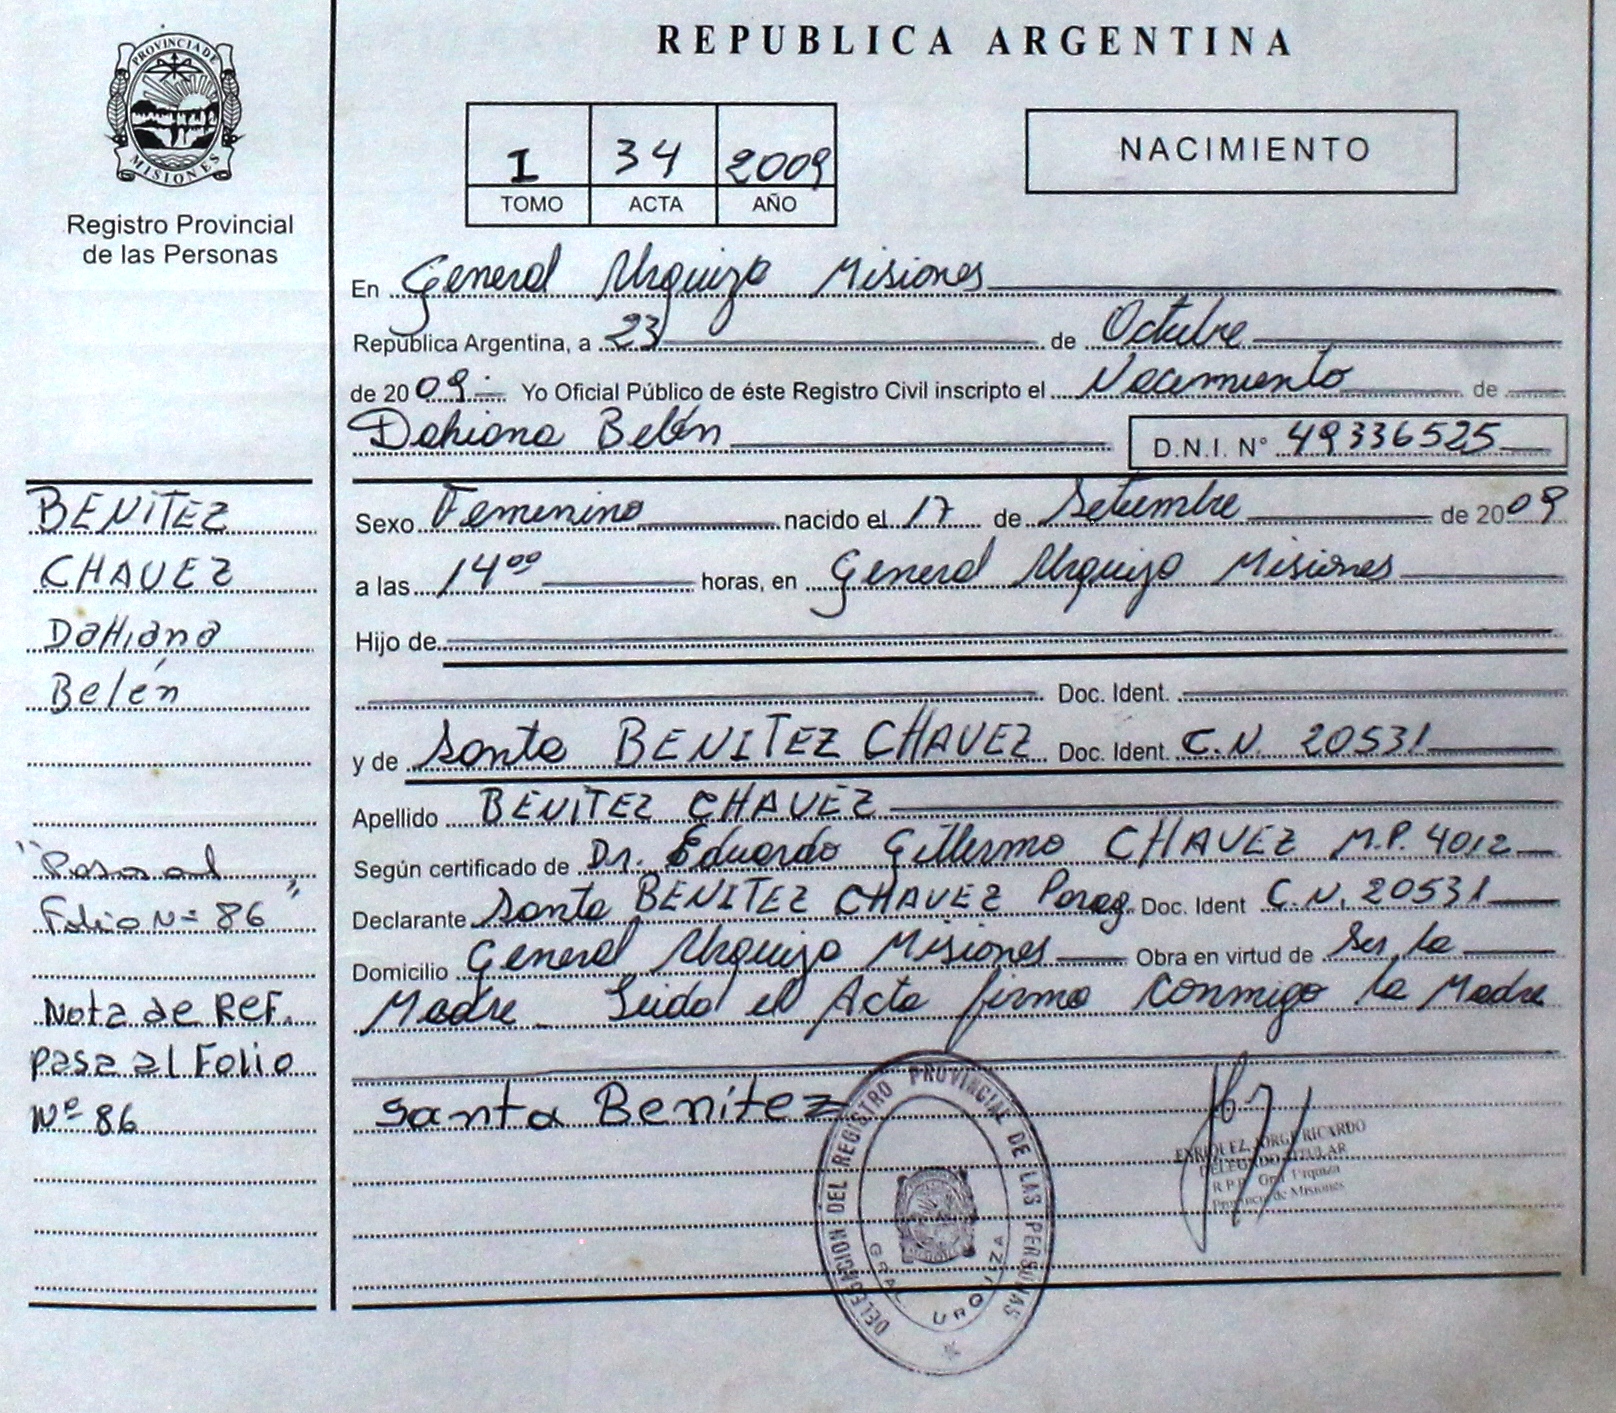 PROVINCIA DE
MISIONES
Registro Provincial
de las Personas
REPUBLICA ARGENTINA
I 34 2009
TOMO ACTA AÑO
NACIMIENTO
En General Urquiza Misiones
Republica Argentina, a 23 de Octubre
de 2009.- Yo Oficial Público de éste Registro Civil inscripto el Nacimiento de
Dahiana Belén D.N.I. N° 49336525
Sexo Femenino nacido el 17 de Setiembre de 2009
a las 14 00 horas, en General Urquiza Misiones
Hijo de
Doc. Ident.
y de Santa BENITEZ CHAVEZ Doc. Ident. C.N. 20531
Apellido BENITEZ CHAVEZ
Según certificado de Dr. Eduardo Gillermo CHAVEZ M.P. 4012
Declarante Santa BENITEZ CHAVEZ Parag. Doc. Ident C.N. 20531
Domicilio General Urquiza Misiones Obra en virtud de Ser la
Madre. Leida el Acta firma conmigo la Madre
Santa Benitez
BENITEZ
CHAVEZ
Dahiana
Belén
"Pasa al
Folio Nº 86"
Nota de REF.
pasa al Folio
Nº 86
DELEGACION DEL REGISTRO PROVINCIAL DE LAS PERSONAS
GRAL URQUIZA
ENRIQUEZ, JORGE RICARDO
DELEGADO TITULAR
R.P.P. Gral Urquiza
Provincia de Misiones